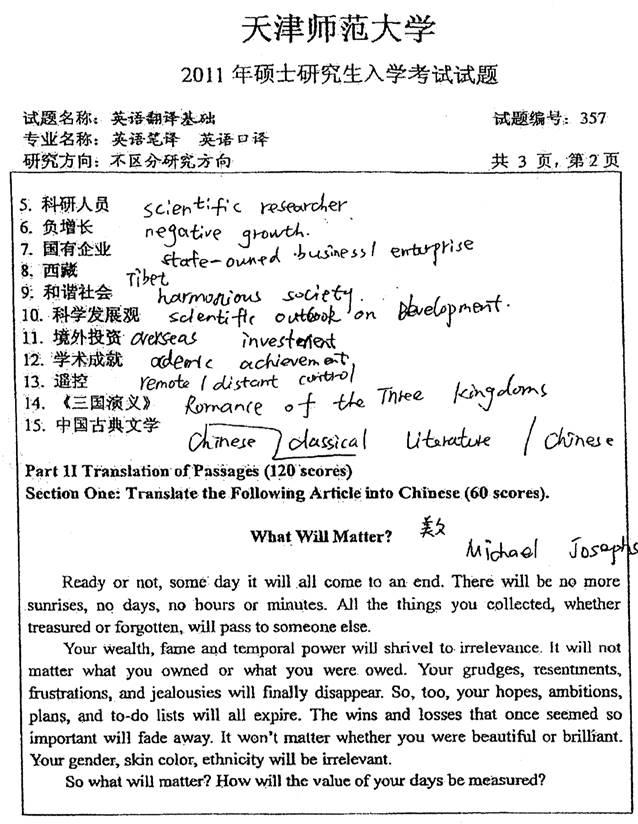 天津师范大学
2011 年硕士研究生入学考试试题
试题名称：英语翻译基础 试题编号：357
专业名称：英语笔译 英语口译
研究方向：不区分研究方向 共 3 页，第 2 页
5. 科研人员 scientific researcher
6. 负增长 negative growth.
7. 国有企业 state-owned business/ enterprise
8. 西藏 Tibet
9. 和谐社会 harmonious society.
10. 科学发展观 scientific outlook on Development.
11. 境外投资 overseas investment
12. 学术成就 ademic achievement
13. 遥控 remote / distant control
14. 《三国演义》 Romance of the Three Kingdoms
15. 中国古典文学 Chinese classical Literature / Chinese
Part 1I Translation of Passages (120 scores)
Section One: Translate the Following Article into Chinese (60 scores).
What Will Matter? 美文
Michael Josephs
Ready or not, some day it will all come to an end. There will be no more
sunrises, no days, no hours or minutes. All the things you collected, whether
treasured or forgotten, will pass to someone else.
Your wealth, fame and temporal power will shrivel to irrelevance. It will not
matter what you owned or what you were owed. Your grudges, resentments,
frustrations, and jealousies will finally disappear. So, too, your hopes, ambitions,
plans, and to-do lists will all expire. The wins and losses that once seemed so
important will fade away. It won't matter whether you were beautiful or brilliant.
Your gender, skin color, ethnicity will be irrelevant.
So what will matter? How will the value of your days be measured?